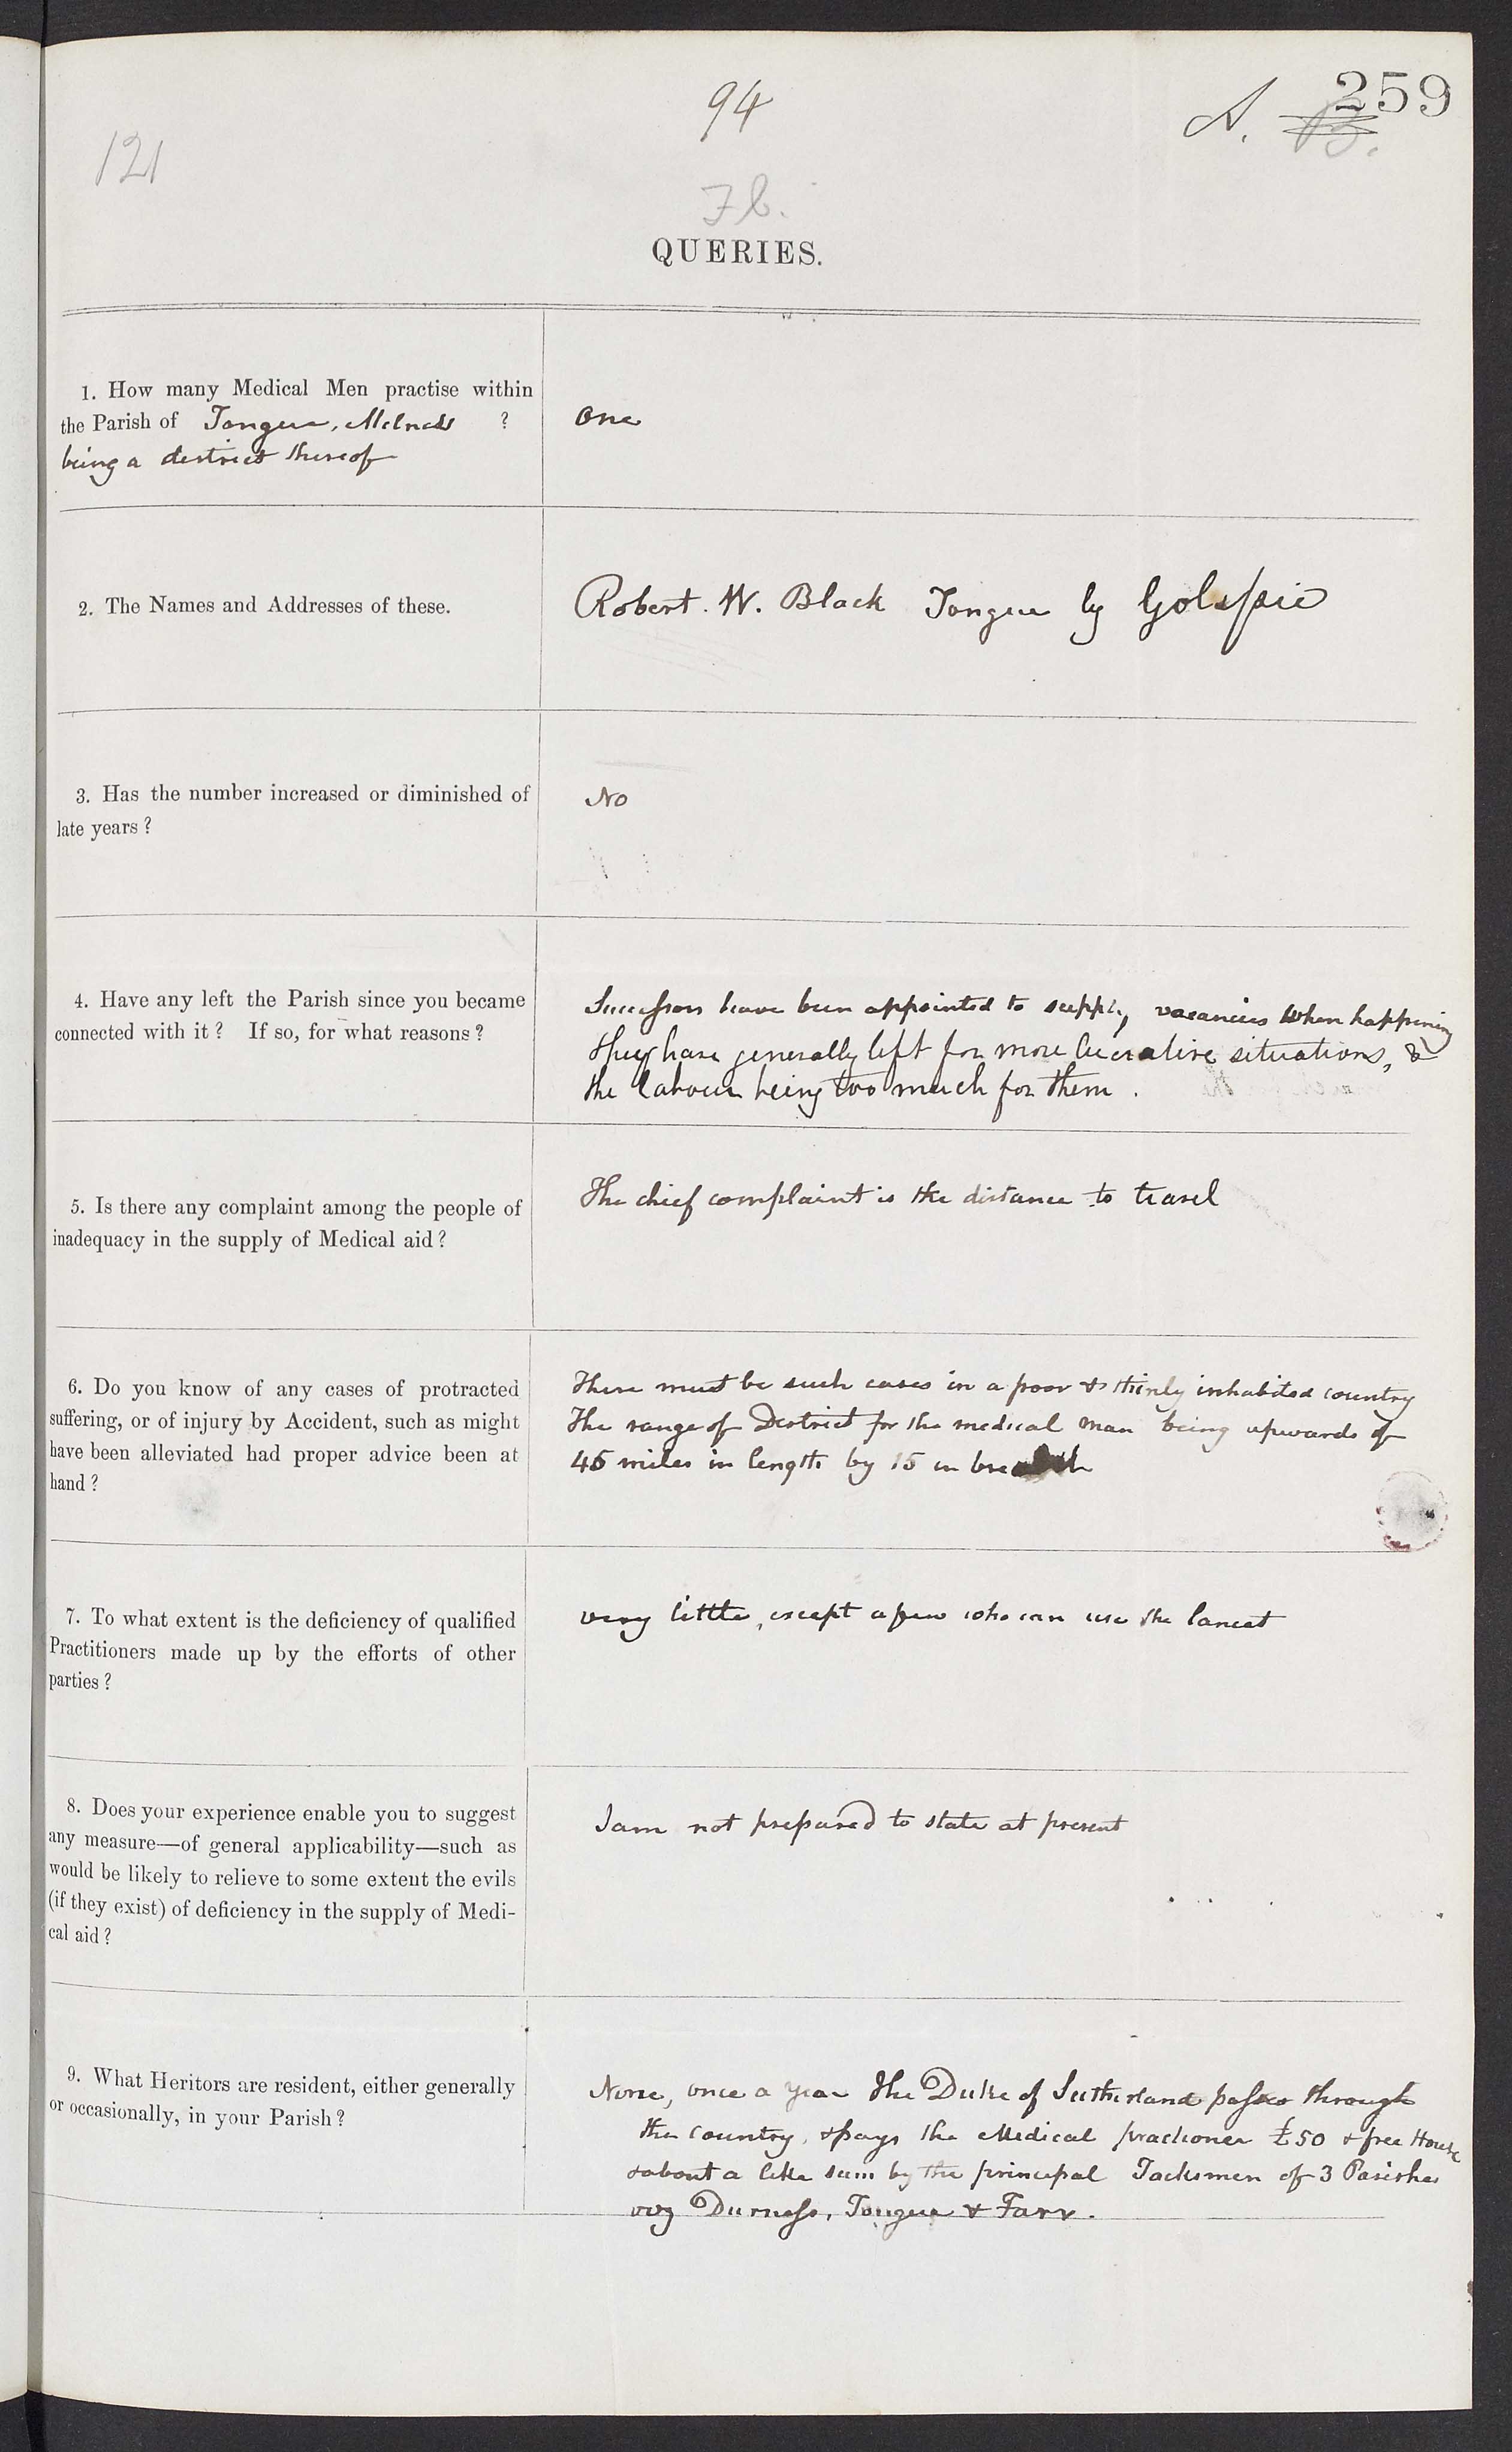 94
259
A. B.
121
7b.
QUERIES.
1. How many Medical Men practise within
the Parish of Tongue, Melness ?
being a district thereof
One
2. The Names and Addresses of these.
Robert. W. Black Tongue by Golspie
3. Has the number increased or diminished of
late years ?
No
4. Have any left the Parish since you became
connected with it ? If so, for what reasons ?
Successors have been appointed to supply vacancies when happening
they have generally left for more lucrative situations, &
the labour being too much for them .
5. Is there any complaint among the people of
inadequacy in the supply of Medical aid ?
The chief complaint is the distance to travel
6. Do you know of any cases of protracted
suffering, or of injury by Accident, such as might
have been alleviated had proper advice been at
hand ?
There must be such cases in a poor & thinly inhabited country
The range of District for the medical man being upwards of
45 miles in length by 15 in breadth
7. To what extent is the deficiency of qualified
Practitioners made up by the efforts of other
parties ?
very little, except a few who can use the lancet
8. Does your experience enable you to suggest
any measure—of general applicability—such as
would be likely to relieve to some extent the evils
(if they exist) of deficiency in the supply of Medi-
cal aid ?
I am not prepared to state at present
9. What Heritors are resident, either generally
or occasionally, in your Parish ?
None, once a year the Duke of Sutherland passes through
the country, & pays the Medical practioner £50 & free House
& about a like sum by the principal Tacksmen of 3 Parishes
viz Durness, Tongue & Farr.